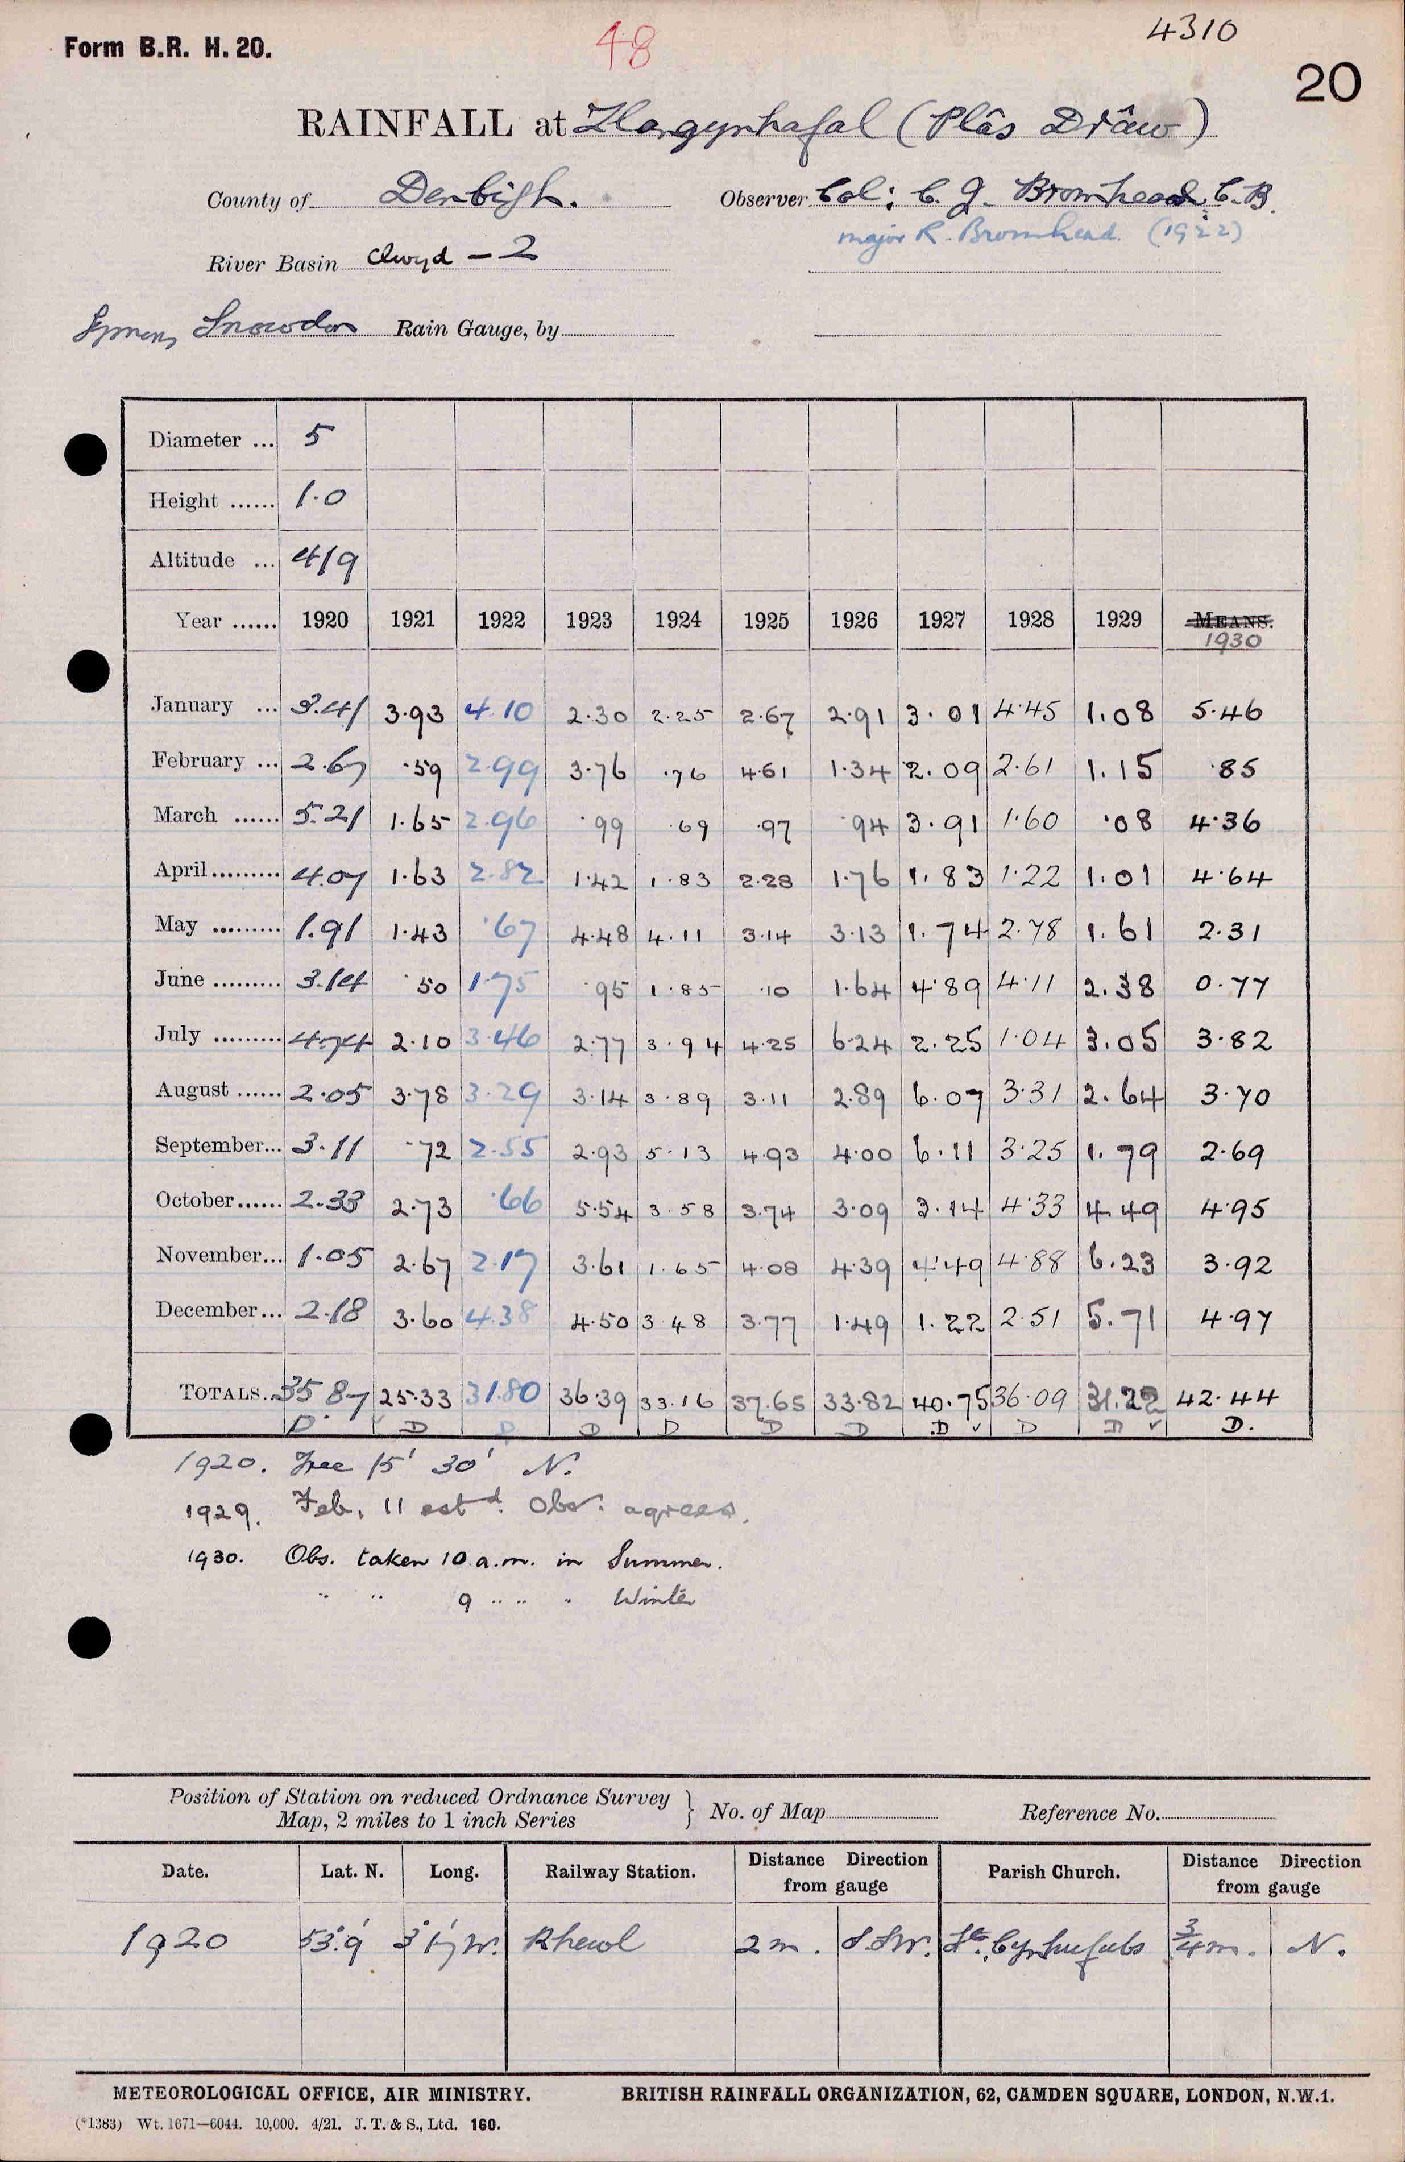 Form B.R. H. 20.
48
4310
20
RAINFALL at Llangynhafal (Plâs Drâw)
County of Denbigh.
Observer Col: C. J. Bromhead, C.B.
Major R. Bromhead. (1922)
River Basin Clwyd - 2
Symons Snowdon Rain Gauge, by
Diameter ... 5
Height ...... 1.0
Altitude ... 419
Year ...... 1920 1921 1922 1923 1924 1925 1926 1927 1928 1929 MEANS.
1930
January ... 3.41 3.93 4.10 2.30 2.25 2.67 2.91 3.01 4.45 1.08 5.46
February ... 2.67 .59 2.99 3.76 .76 4.61 1.34 2.09 2.61 1.15 .85
March ...... 5.21 1.65 2.96 .99 .69 .97 .94 3.91 1.60 .08 4.36
April ......... 4.07 1.63 2.82 1.42 1.83 2.28 1.76 1.83 1.22 1.01 4.64
May ......... 1.91 1.43 .67 4.48 4.11 3.14 3.13 1.74 2.78 1.61 2.31
June ......... 3.14 .50 1.75 .95 1.85 .10 1.64 4.89 4.11 2.38 0.77
July ......... 4.74 2.10 3.46 2.77 3.94 4.25 6.24 2.25 1.04 3.05 3.82
August ...... 2.05 3.78 3.29 3.14 3.89 3.11 2.89 6.07 3.31 2.64 3.70
September... 3.11 .72 2.55 2.93 5.13 4.93 4.00 6.11 3.25 1.79 2.69
October...... 2.33 2.73 .66 5.54 3.58 3.74 3.09 3.14 4.33 4.49 4.95
November... 1.05 2.67 2.17 3.61 1.65 4.08 4.39 4.49 4.88 6.23 3.92
December... 2.18 3.60 4.38 4.50 3.48 3.77 1.49 1.22 2.51 5.71 4.97
TOTALS... 35.87 25.33 31.80 36.39 33.16 37.65 33.82 40.75 36.09 31.22 42.44
D. D D D D D D D ✓ D D ✓ D.
1920. Tree 15' 30' N.
1929. Feb. 11 estd. Obsr. agrees.
1930. Obs. taken 10 a.m. in Summer.
" " 9 " " " Winter
Position of Station on reduced Ordnance Survey
Map, 2 miles to 1 inch Series } No. of Map Reference No.
Date. Lat. N. Long. Railway Station. Distance Direction from gauge Parish Church. Distance Direction from gauge
1920 53°9' 3°17' W. Rhewl 2 m. SSW. St. Cynhafals 3/4 m. N.
METEOROLOGICAL OFFICE, AIR MINISTRY. BRITISH RAINFALL ORGANIZATION, 62, CAMDEN SQUARE, LONDON, N.W.1.
(*1383) Wt. 1671—6044. 10,000. 4/21. J. T. & S., Ltd. 160.